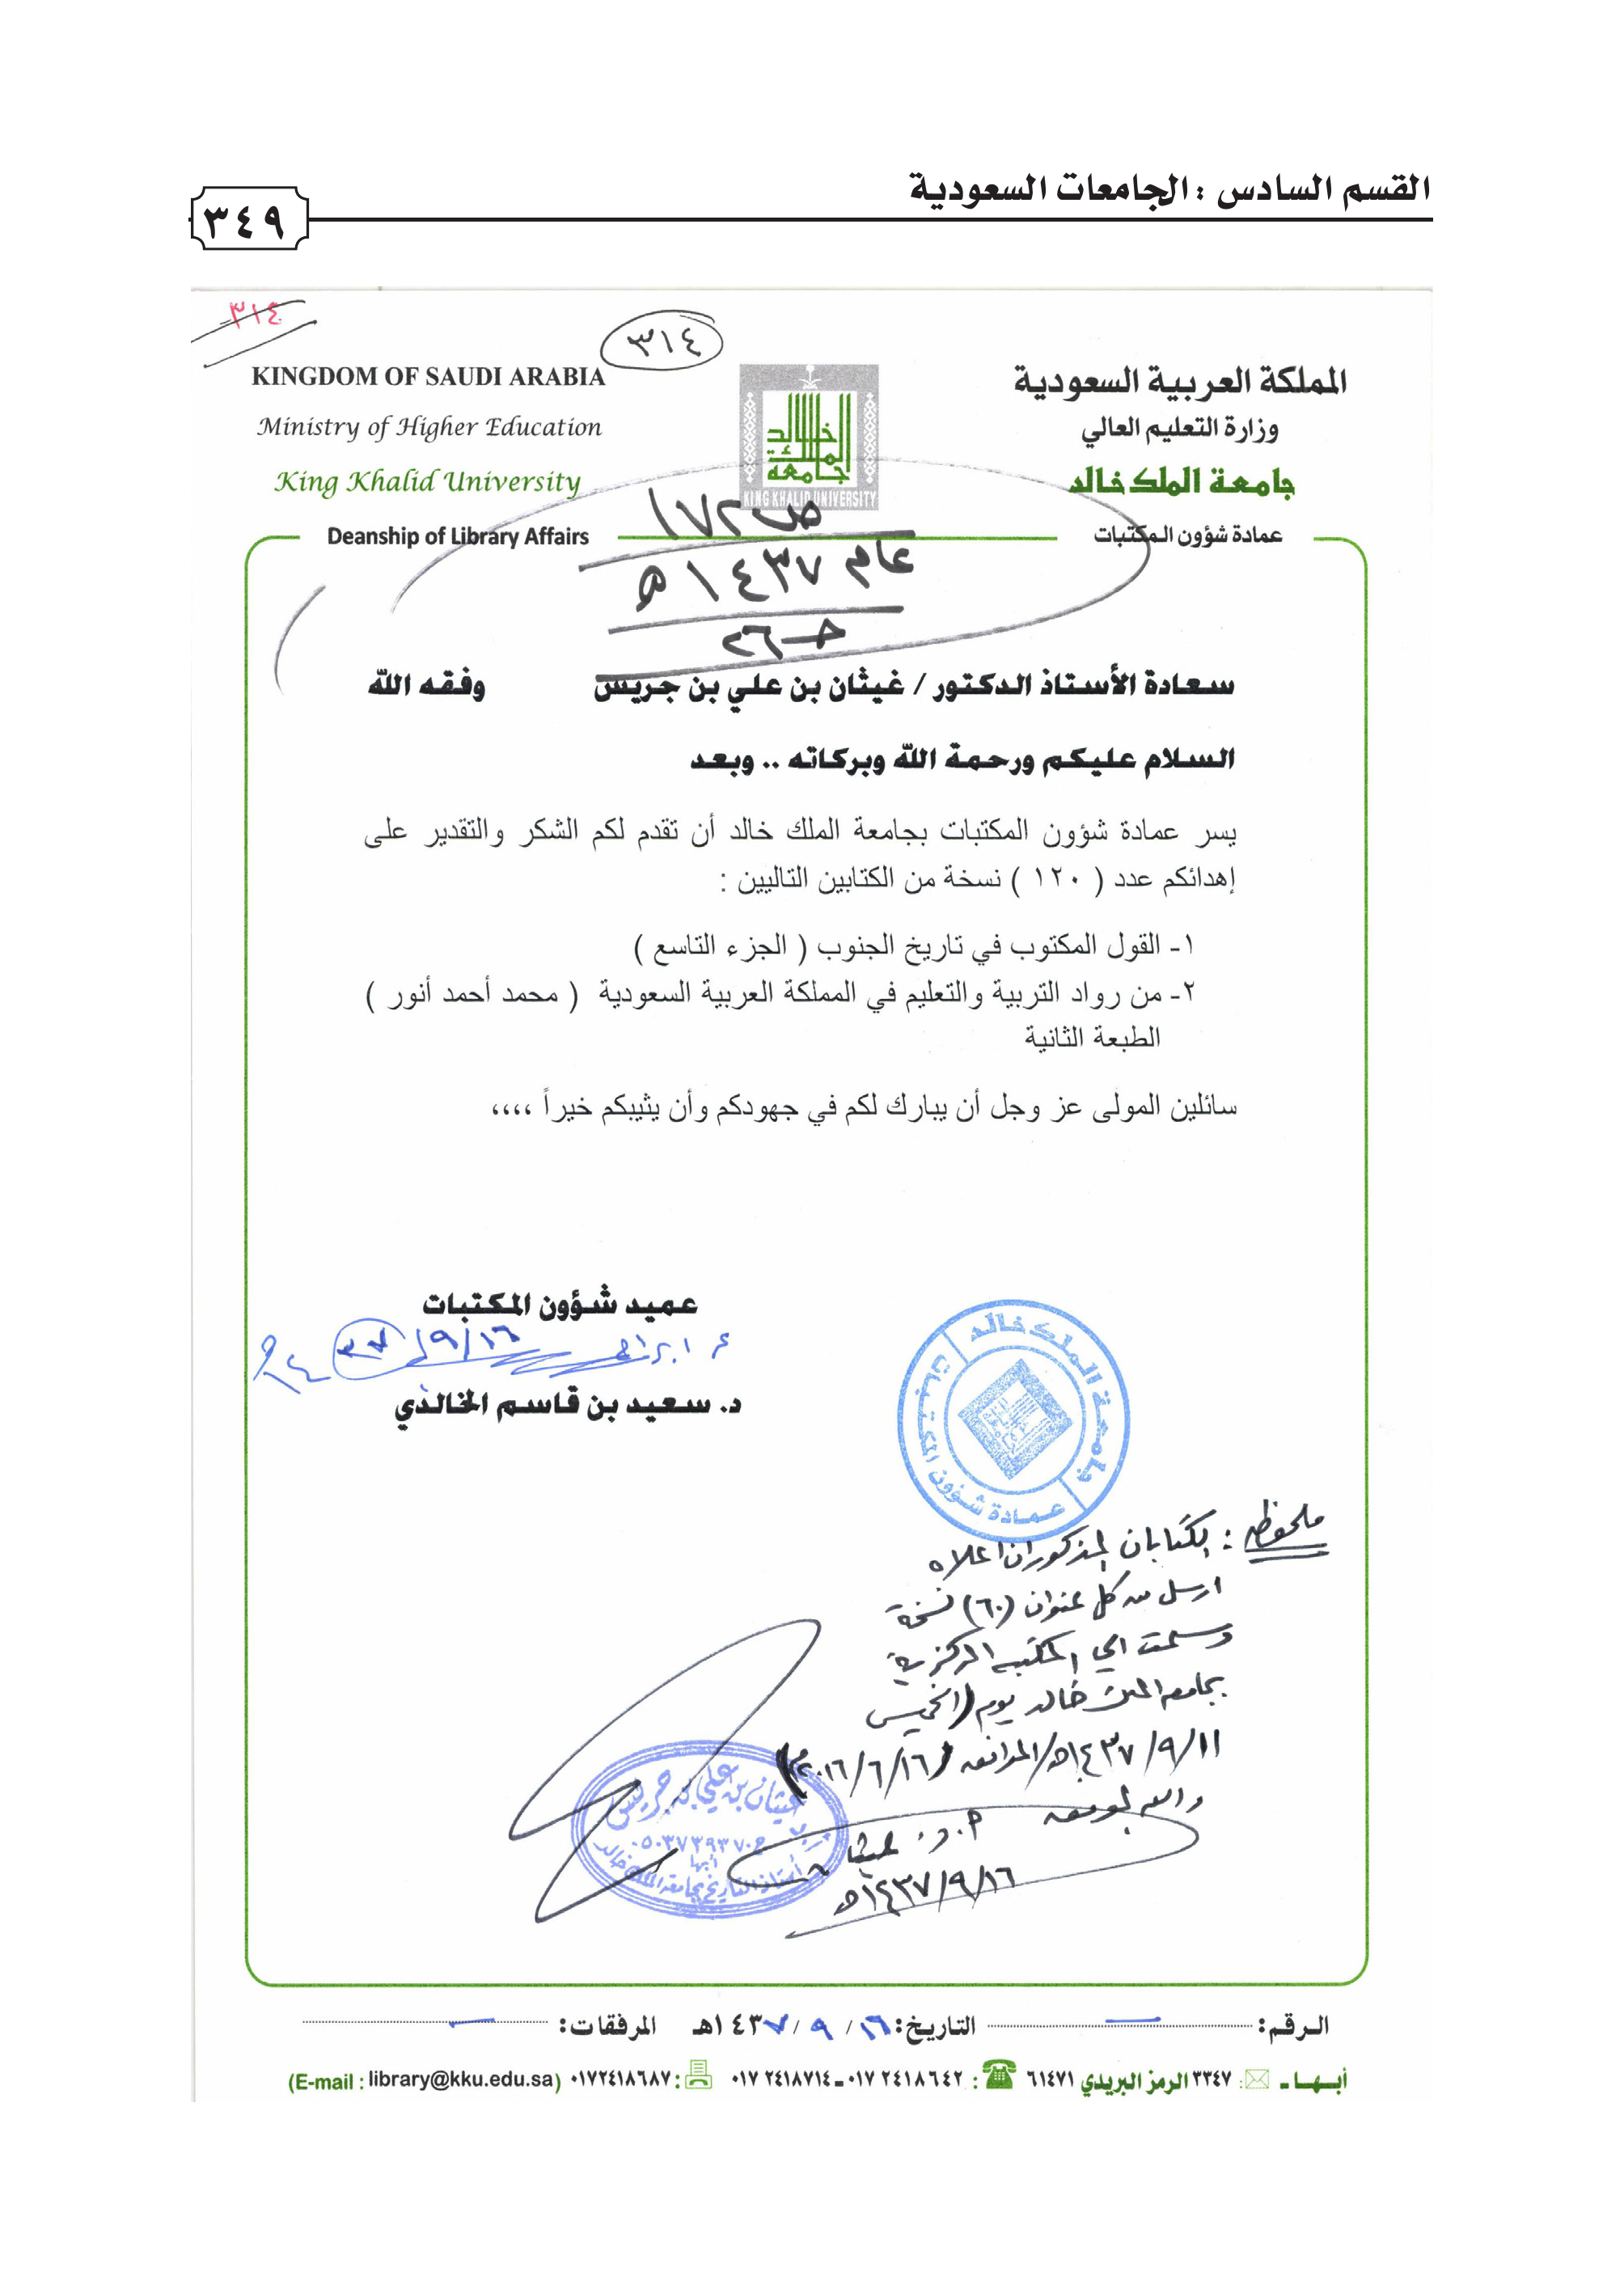 القسم السادس : الجامعات السعودية
٣٤٩
٣١٤
٣١٤
KINGDOM OF SAUDI ARABIA
Ministry of Higher Education
King Khalid University
Deanship of Library Affairs
جامعة الملك خالد
KING KHALID UNIVERSITY
المملكة العربية السعودية
وزارة التعليم العالي
جامعة الملك خالد
عمادة شؤون المكتبات
ص١٧٢
عام ١٤٣٧هـ
حـ٢٦
سعادة الأستاذ الدكتور / غيثان بن علي بن جريس وفقه الله
السلام عليكم ورحمة الله وبركاته .. وبعد
يسر عمادة شؤون المكتبات بجامعة الملك خالد أن تقدم لكم الشكر والتقدير على
إهدائكم عدد ( ١٢٠ ) نسخة من الكتابين التاليين :
١- القول المكتوب في تاريخ الجنوب ( الجزء التاسع )
٢- من رواد التربية والتعليم في المملكة العربية السعودية ( محمد أحمد أنور )
الطبعة الثانية
سائلين المولى عز وجل أن يبارك لكم في جهودكم وأن يثيبكم خيراً ،،،،
عميد شؤون المكتبات
١٦/٩/٣٧
د. سعيد بن قاسم الخالدي
جامعة الملك خالد
عمادة شؤون المكتبات
ملحوظه : الكتابان المذكوران اعلاه
ارسل من كل عنوان (٦٠) نسخة
وسلمت الى المكتبه المركزية
بجامعه الملك خالد يوم (الخميس
١١/٩/١٤٣٧هـ/ الموافق (١٦/٦/٢٠١٦م)
والله الموفق
أ.د. غيثان
١٦/٩/١٤٣٧هـ
غيثان بن علي بن جريس
أبها
أستاذ التاريخ بجامعة الملك خالد
الرقم: التاريخ: ١٦ / ٩ / ١٤٣٧هـ المرفقات:
أبـهـا ـ : ٣٣٤٧ الرمز البريدي ٦١٤٧١ : ٠١٧ ٢٤١٨٦٤٢ ـ ٠١٧ ٢٤١٨٧١٤ : ٠١٧٢٤١٨٦٨٧ (E-mail : library@kku.edu.sa)